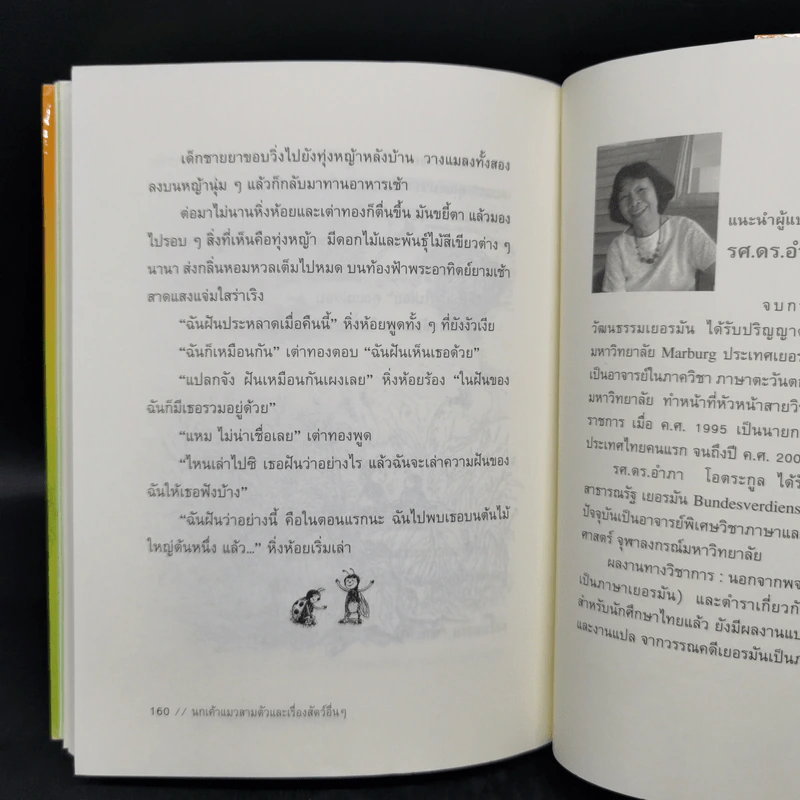 เด็กชายยาขอบวิ่งไปยังทุ่งหญ้าหลังบ้าน วางแมลงทั้งสอง
ลงบนหญ้านุ่ม ๆ แล้วก็กลับมาทานอาหารเช้า
ต่อมาไม่นานหิ่งห้อยและเต่าทองก็ตื่นขึ้น มันขยี้ตา แล้วมอง
ไปรอบ ๆ สิ่งที่เห็นคือทุ่งหญ้า มีดอกไม้และพันธุ์ไม้สีเขียวต่าง ๆ
นานา ส่งกลิ่นหอมหวลเต็มไปหมด บนท้องฟ้าพระอาทิตย์ยามเช้า
สาดแสงแจ่มใสร่าเริง
“ฉันฝันประหลาดเมื่อคืนนี้” หิ่งห้อยพูดทั้ง ๆ ที่ยังงัวเงีย
“ฉันก็เหมือนกัน” เต่าทองตอบ “ฉันฝันเห็นเธอด้วย”
“แปลกจัง ฝันเหมือนกันเผงเลย” หิ่งห้อยร้อง “ในฝันของ
ฉันก็มีเธอรวมอยู่ด้วย”
“แหม ไม่น่าเชื่อเลย” เต่าทองพูด
“ไหนเล่าไปซิ เธอฝันว่าอย่างไร แล้วฉันจะเล่าความฝันของ
ฉันให้เธอฟังบ้าง”
“ฉันฝันว่าอย่างนี้ คือในตอนแรกนะ ฉันไปพบเธอบนต้นไม้
ใหญ่ต้นหนึ่ง แล้ว...” หิ่งห้อยเริ่มเล่า
160 // นกเค้าแมวสามตัวและเรื่องสัตว์อื่นๆ
แนะนำผู้แป
รศ.ดร.อำ
จบกา
วัฒนธรรมเยอรมัน ได้รับปริญญา
มหาวิทยาลัย Marburg ประเทศเยอร
เป็นอาจารย์ในภาควิชา ภาษาตะวันต
มหาวิทยาลัย ทำหน้าที่หัวหน้าสายวิ
ราชการ เมื่อ ค.ศ. 1995 เป็นนายก
ประเทศไทยคนแรก จนถึงปี ค.ศ. 200
รศ.ดร.อำภา โอตระกูล ได้รั
สาธารณรัฐ เยอรมัน Bundesverdiens
ปัจจุบันเป็นอาจารย์พิเศษวิชาภาษาแล
ศาสตร์ จุฬาลงกรณ์มหาวิทยาลัย
ผลงานทางวิชาการ : นอกจากพจ
เป็นภาษาเยอรมัน) และตำราเกี่ยวกั
สำหรับนักศึกษาไทยแล้ว ยังมีผลงานแป
และงานแปล จากวรรณคดีเยอรมันเป็นภ